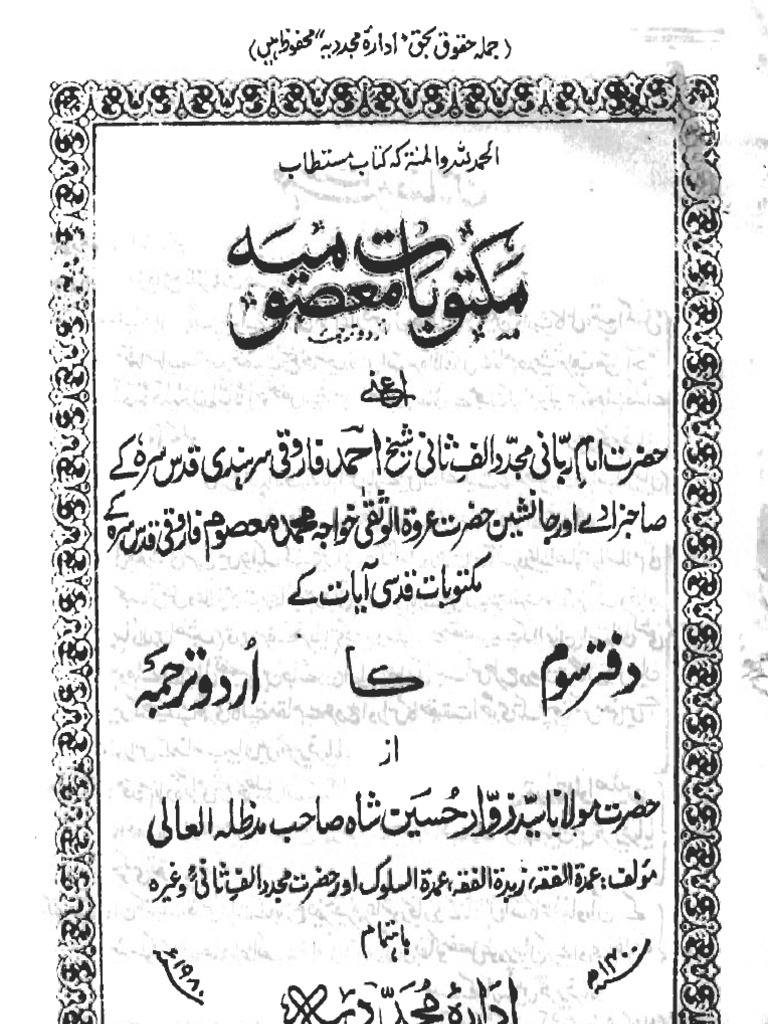 (جملہ حقوق بحق "ادارۂ مجددیہ" محفوظ ہیں)
الحمد للہ والمنۃ کہ کتاب مستطاب
مکتوبات معصومیہ
اردو ترجمہ
اعنی
حضرت امام ربانی مجدد الف ثانی شیخ احمد فاروقی سرہندی قدس سرہ کے
صاحبزادے اور جانشین حضرت عروۃ الوثقیٰ خواجہ محمد معصوم فاروقی قدس سرہ کے
مکتوبات قدسی آیات کے
دفتر سوم کا اردو ترجمہ
از
حضرت مولانا سید زوّار حسین شاہ صاحب مدظلہ العالی
مؤلف: عمدۃ الفقہ، زبدۃ الفقہ، عمدۃ السلوک اور حضرت مجدد الف ثانیؒ وغیرہ
باہتمام
۱۴۰۰ھ ۱۹۸۰ء
ادارۂ مجددیہ